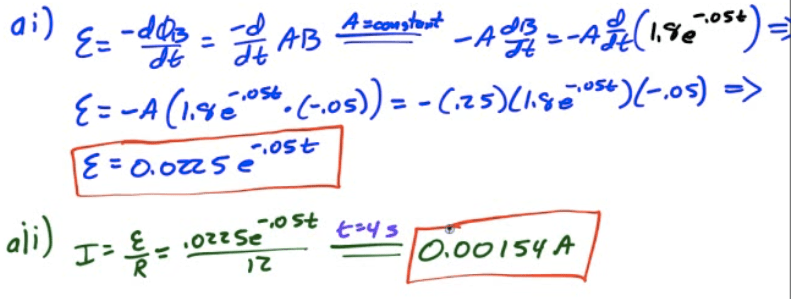 ai) ε = -dΦB/dt = -d/dt AB A=constant = -A dB/dt = -A d/dt (1.8e^-.05t) ⇒
ε = -A (1.8e^-.05t · (-.05)) = -(.25)(1.8e^-.05t)(-.05) ⇒
ε = 0.0225e^-.05t
aii) I = ε/R = .0225e^-.05t/12 t=4s = 0.00154 A